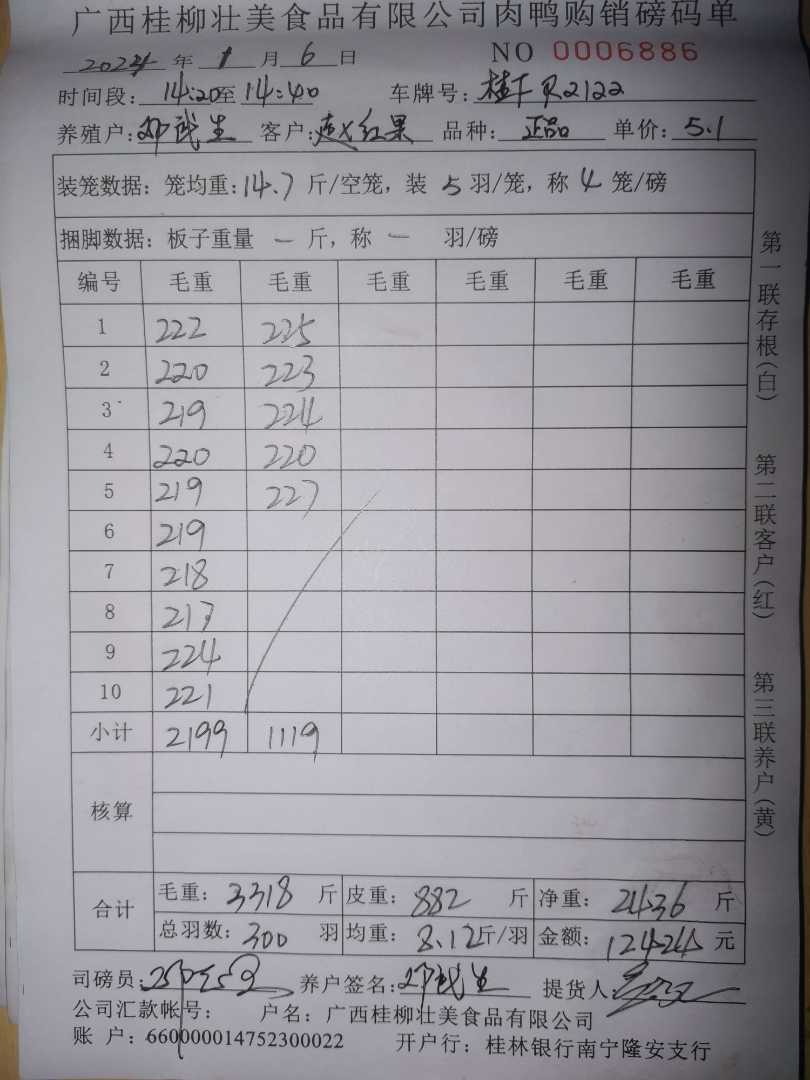 广西桂柳壮美食品有限公司肉鸭购销磅码单
2024 年 1 月 6 日 NO 0006886
时间段: 14:20至14:40 车牌号: 桂 R2122
养殖户: 邓武生 客户: 赵红果 品种: 正品 单价: 5.1
装笼数据: 笼均重: 14.7 斤/空笼, 装 5 羽/笼, 称 4 笼/磅
捆脚数据: 板子重量 一 斤, 称 一 羽/磅
编号 毛重 毛重 毛重 毛重 毛重 毛重
1 222 225
2 220 223
3 219 224
4 220 220
5 219 227
6 219
7 218
8 217
9 224
10 221
小计 2199 1119
核算
合计 毛重: 3318 斤 皮重: 882 斤 净重: 2436 斤
总羽数: 300 羽 均重: 8.12斤/羽 金额: 12424 元
司磅员: 养户签名: 邓武生 提货人:
公司汇款帐号: 户名: 广西桂柳壮美食品有限公司
账 户: 660000014752300022 开户行: 桂林银行南宁隆安支行
第一联存根(白) 第二联客户(红) 第三联养户(黄)